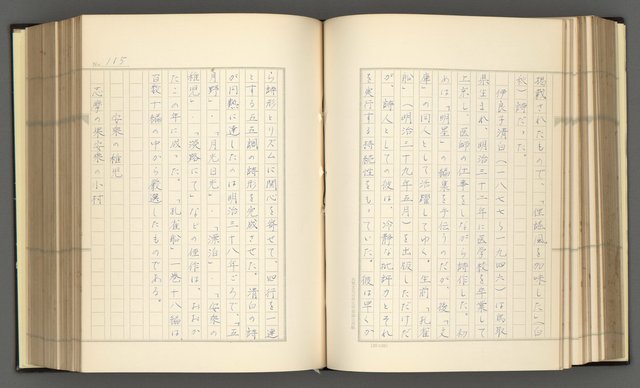 掲載されたもので、「保姫風を加味した」(白
秋)詩だった。
伊良子清白(一八七七〜一九四六)は鳥取
県生まれ、明治三十二年に医学校を卒業して
上京し、医師の仕事をしながら詩作した。初
めは「明星」の編集を手伝うのだが、後「文
庫」の同人として活躍してゆく。生前「孔雀
船」(明治三十九年五月)を出版しただけだ
が、詩人としての彼は、冷静な批評力とそれ
を実行する持続性をもっていた。彼は早くか
No. 115
ら詩形とリズムに関心を寄せて、四行を一連
とする五五調の詩形を完成させた。清白の詩
が円熟に達したのは明治三十八年ごろで、「五
月野」・「月光日光」・「漂泊」・「安乗の
稚児」・「淡路にて」などの佳作は、おおか
たこの年に成った。「孔雀船」一巻十八編は
百数十編の中から厳選したものである。
安乗の稚児
志摩の果安乗の小村